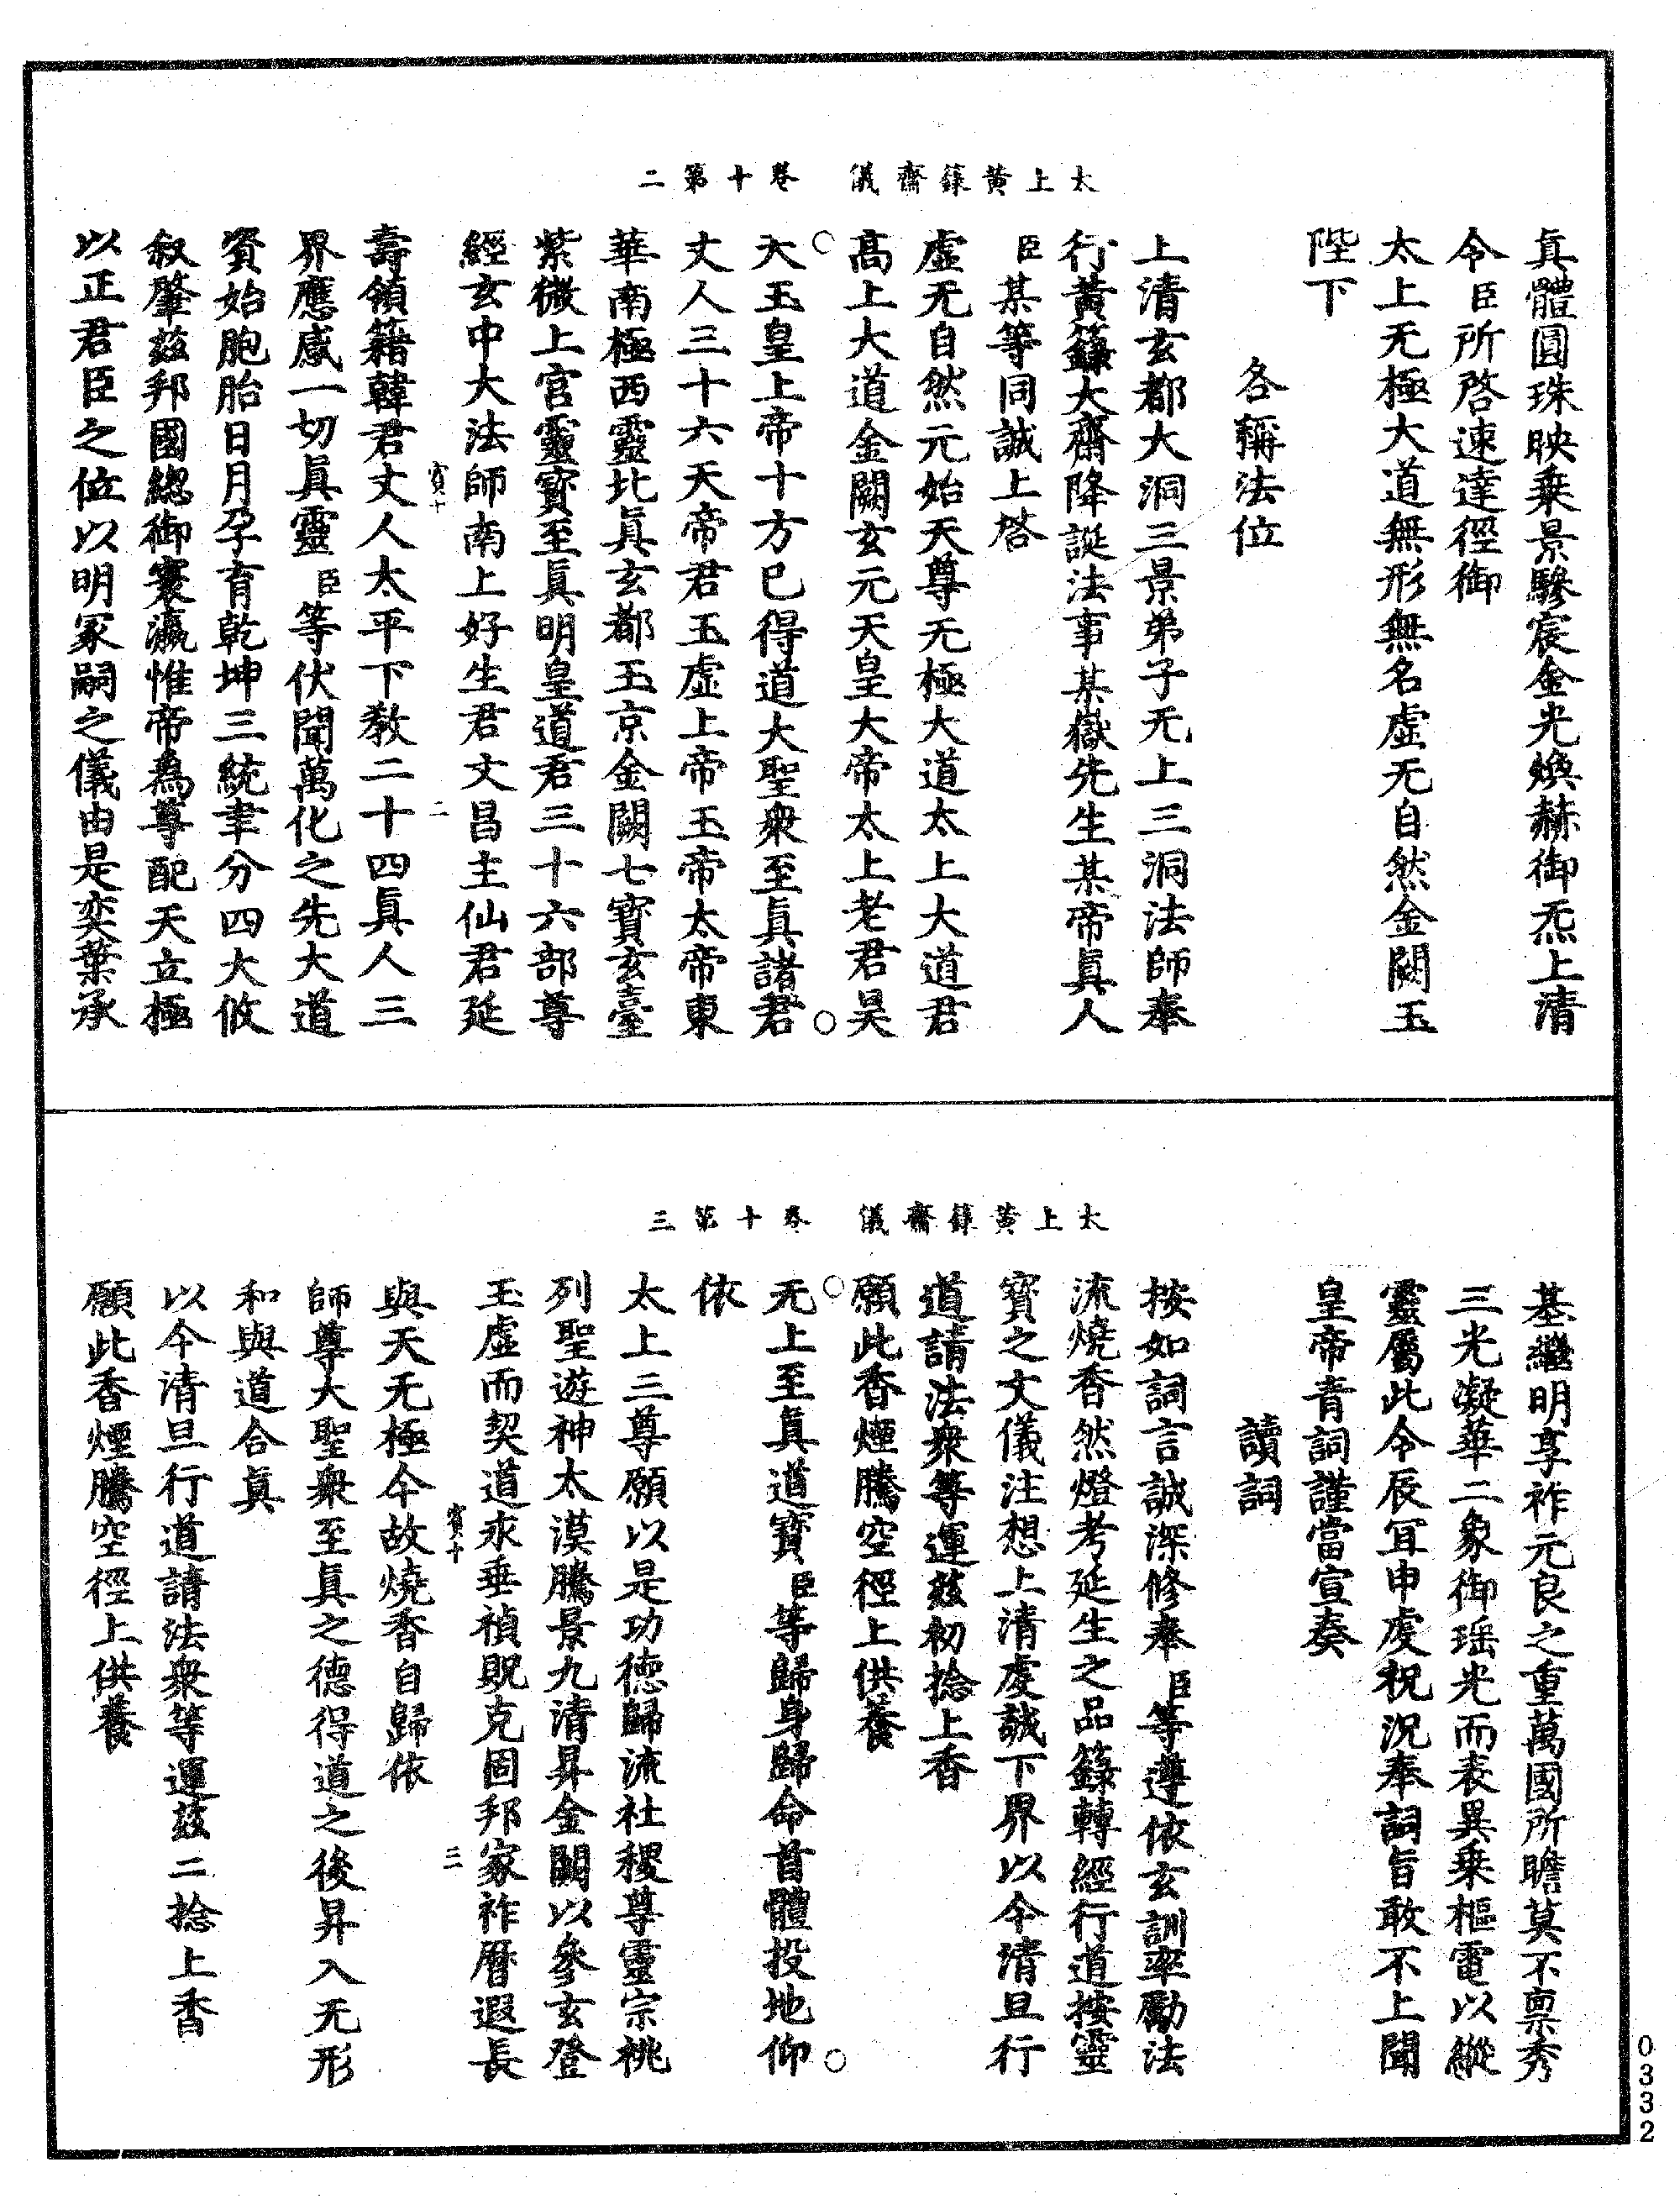 太上黃籙齋儀　卷十第二
真體圓珠映乗景驂宸金光煥赫御炁上清
令臣所啓速達徑御
太上无極大道無形無名虛无自然金闕玉
陛下
各稱法位
上清玄都大洞三景弟子无上三洞法師奉
行黃籙大齋降誕法事某嶽先生某帝真人
臣某等同誠上啓
虛无自然元始天尊无極大道太上大道君
高上大道金闕玄元天皇大帝太上老君昊
天玉皇上帝十方已得道大聖衆至真諸君
丈人三十六天帝君玉虛上帝玉帝太帝東
華南極西靈北真玄都玉京金闕七寶玄臺
紫微上宫靈寶至真明皇道君三十六部尊
經玄中大法師南上好生君文昌主仙君延
寳十　二
壽領籍韓君丈人太平下教二十四真人三
界應感一切真靈臣等伏聞萬化之先大道
資始胞胎日月孕育乾坤三統聿分四大攸
叙肇兹邦國緫御寰瀛惟帝為尊配天立極
以正君臣之位以明冢嗣之儀由是奕葉承
太上黃籙齋儀　卷十第三
基繼明享祚元良之重萬國所瞻莫不禀秀
三光凝華二象御瑶光而表異乗樞電以縱
靈屬此令辰冝申虔祝況奉詞旨敢不上聞
皇帝青詞謹當宣奏
讀詞
按如詞言誠深修奉臣等遵依玄訓率勵法
流燒香然燈考延生之品籙轉經行道按靈
寶之文儀注想上清虔誠下界以今清旦行
道請法衆等運兹初捻上香
願此香煙騰空徑上供養
无上至真道寶臣等歸身歸命首體投地仰
依
太上三尊願以是功德歸流社稷尊靈宗祧
列聖遊神太漠騰景九清昇金闕以參玄登
玉虛而契道永垂禎貺克固邦家祚曆遐長
與天无極今故燒香自歸依
寳十　三
師尊大聖衆至真之德得道之後昇入无形
和與道合真
以今清旦行道請法衆等運兹二捻上香
願此香煙騰空徑上供養
0332